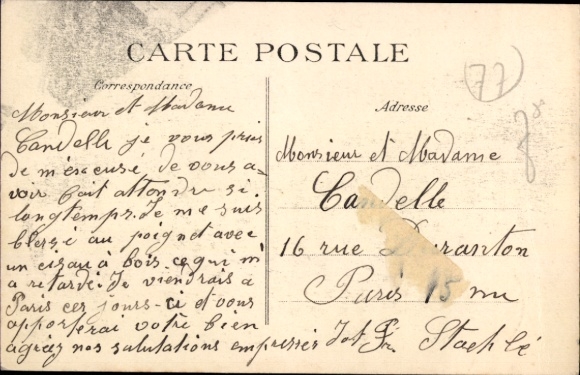 CARTE POSTALE
77
Correspondance
Adresse
Monsieur et Madame
Candelle je vous pries
de m'excusé de vous a-
voir fait attendre si
longtemps. Je me suis
blessé au poignet avec
un ciseau à bois ce qui m'
a retardé. Je viendrais à
Paris ces jours-ci et vous
apporterai votre bien
agréez nos salutations empressées
Monsieur et Madame
Candelle
16 rue Duranton
Paris 15 me
Staehlé